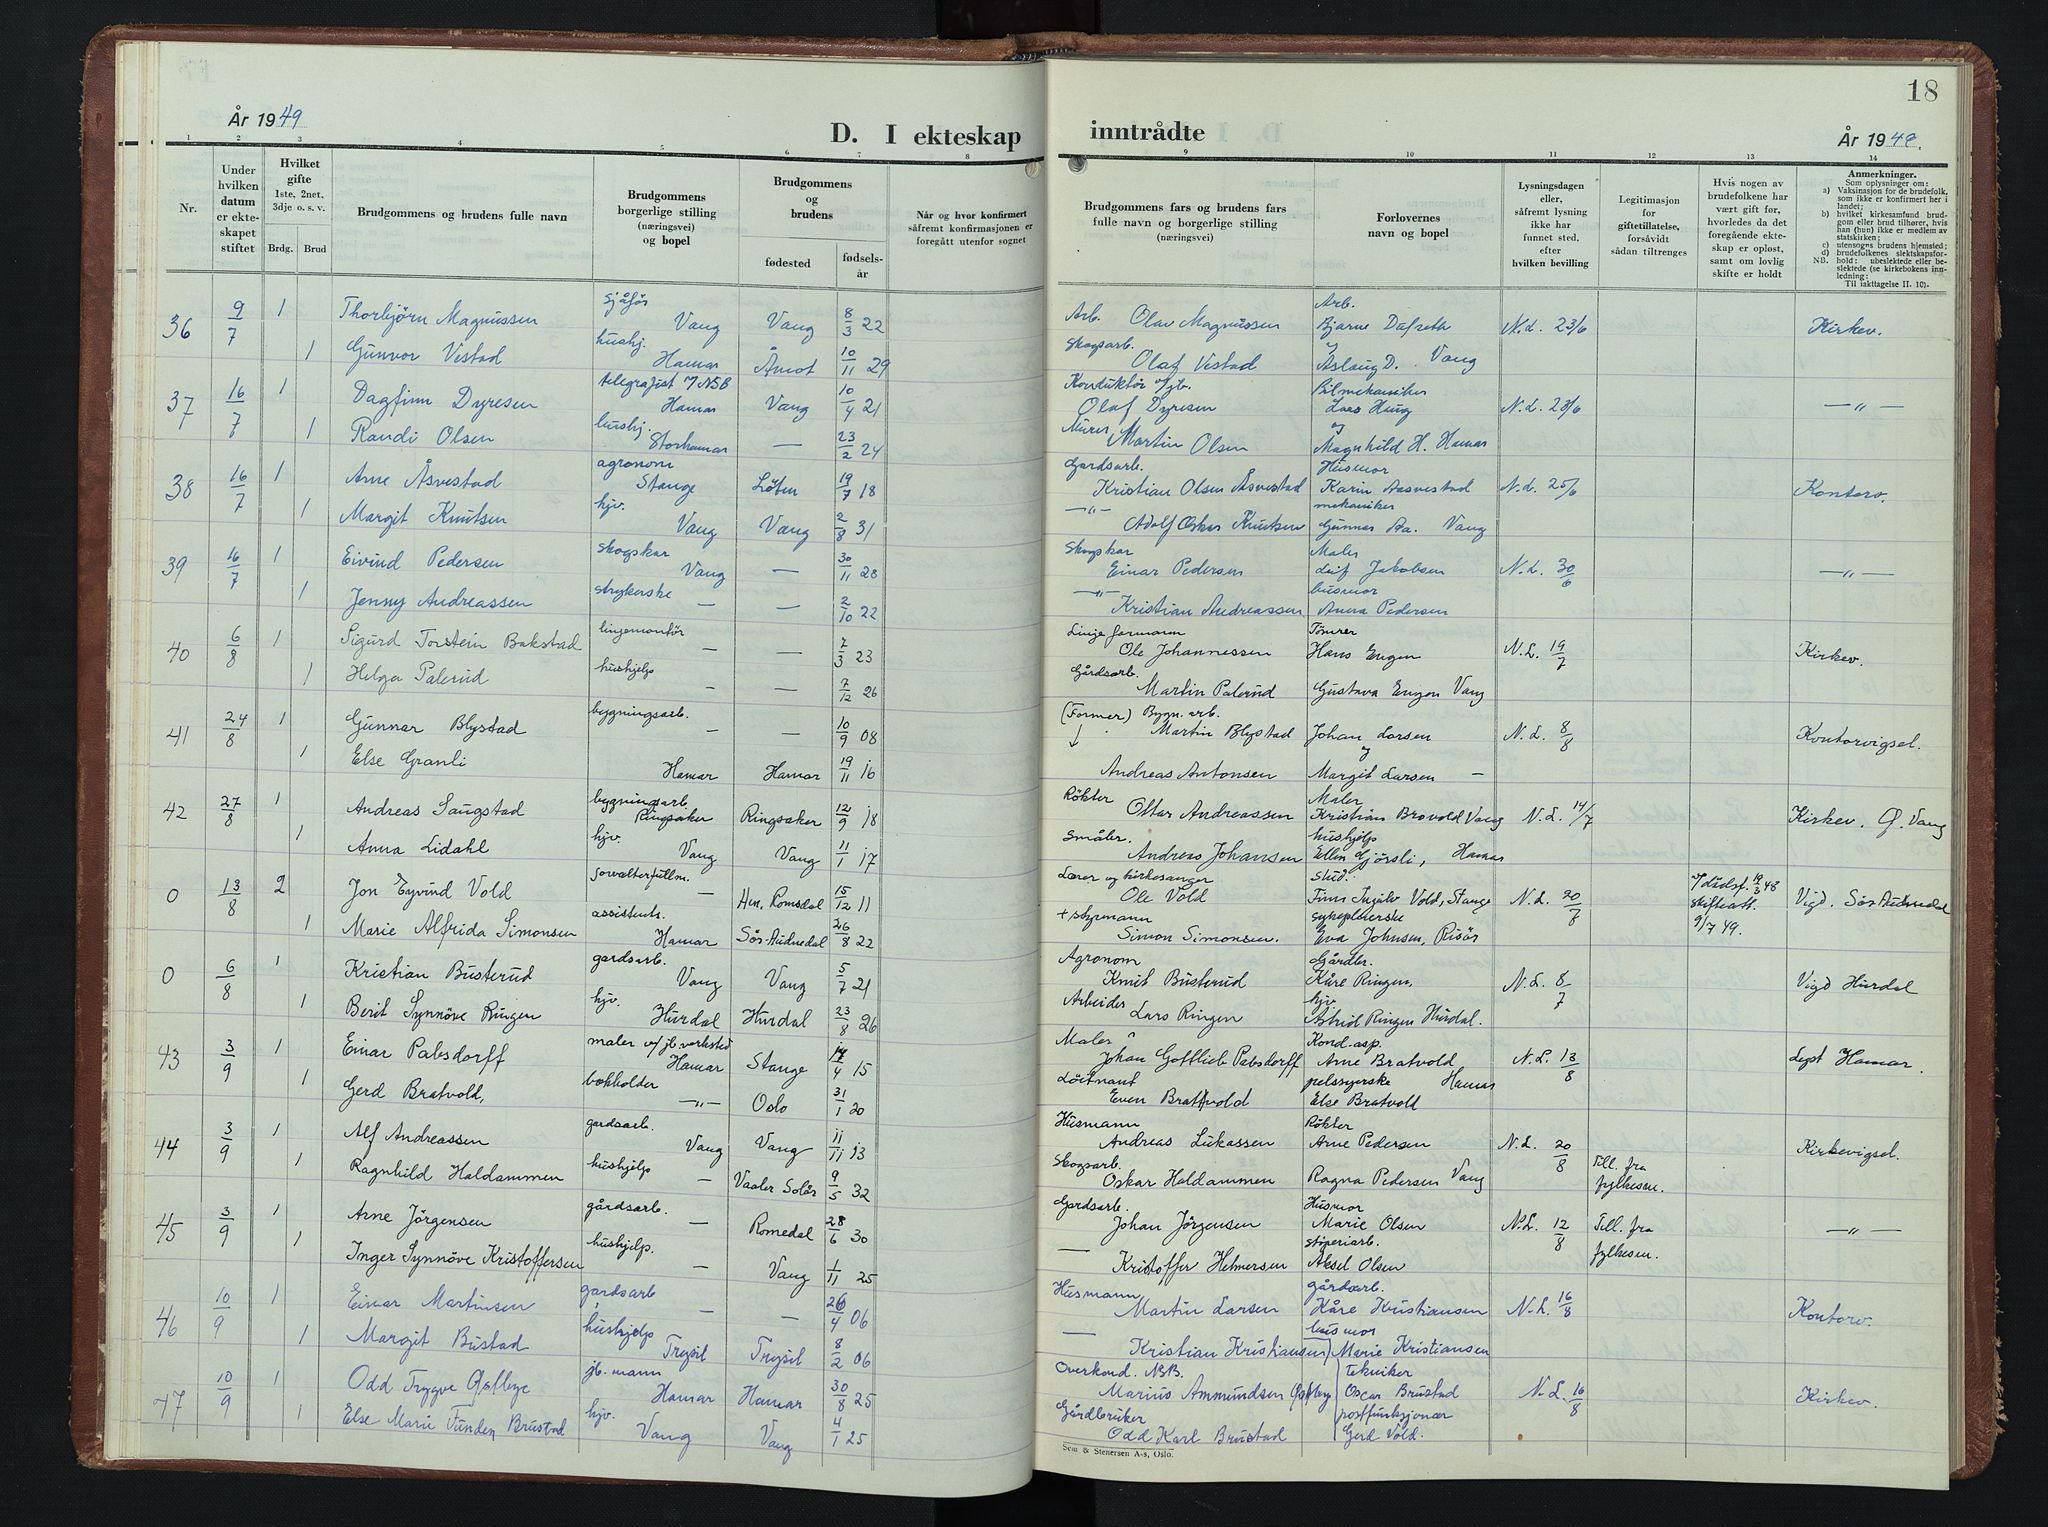 18
År 1949
D. I ekteskap
inntrådte
År 1949.
1 2 3 4 5 6 7 8 9 10 11 12 13 14
Nr.
Under hvilken datum er ekteskapet stiftet
Hvilket gifte 1ste, 2net, 3dje o. s. v.
Brdg. Brud
Brudgommens og brudens fulle navn
Brudgommens borgerlige stilling (næringsvei) og bopel
Brudgommens og brudens
fødested fødselsår
Når og hvor konfirmert såfremt konfirmasjonen er foregått utenfor sognet
Brudgommens fars og brudens fars fulle navn og borgerlige stilling (næringsvei)
Forlovernes navn og bopel
Lysningsdagen eller, såfremt lysning ikke har funnet sted, efter hvilken bevilling
Legitimasjon for giftetillatelse, forsåvidt sådan tiltrenges
Hvis nogen av brudefolkene har vært gift før, hvorledes da det foregående ekteskap er opløst, samt om lovlig skifte er holdt
Anmerkninger.
Som oplysninger om:
a) Vaksinasjon for de brudefolk, som ikke er konfirmert her i landet;
b) hvilket kirkesamfund brudgom eller brud tilhører, hvis han (hun) ikke er medlem av statskirken;
c) utensogns brudens hjemsted;
d) brudefolkenes slektskapsforhold: ubeslektede eller beslektede (se kirkebokens innledning;
NB.
Til iakttagelse II. 10).
36 9/7 1 Thorbjørn Magnussen sjåfør Vang Vang 8/3 22 Arb. Olav Magnussen Arb. Bjarne Dafseth N.L. 23/6 Kirkev.
1 Gunvor Vestad hushj. Hamar Åmot 10/11 29 Skogsarb. Olaf Vestad og Aslaug D. Vang
37 16/7 1 Dagfinn Dyresen telegrafist v/NSB Hamar Vang 10/4 21 Konduktør v/jb. Olaf Dyresen Bilmekaniker Lars Haug N.L. 23/6 —"—
1 Randi Olsen hushj. Storhamar — 23/2 24 Murer Martin Olsen og Magnhild H. Hamar
38 16/7 1 Arne Åsvestad agronom Stange Løten 19/7 18 Gardsarb. Kristian Olsen Åsvestad Husmor Karin Aasvestad N.L. 25/6 Kontorv.
1 Margit Knutsen hjv. Vang Vang 2/8 31 —"— Adolf Oskar Knutsen mekaniker Gunnar Aa. Vang
39 16/7 1 Eivind Pedersen skogskar Vang — 30/11 28 Skogskar Einar Pedersen Maler Leif Jakobsen N.L. 30/6 —"—
1 Jenny Andreassen strykerske — — 2/10 22 —"— Kristian Andreassen husmor Anna Pedersen
40 6/8 1 Sigurd Torstein Bakstad linjemontør — — 7/3 23 Linjeformann Ole Johannessen Tömrer Hans Engen N.L. 19/7 Kirkev.
1 Helga Palerud hushjelp — — 7/12 26 Gårdsarb. Martin Palerud Gustava Engen Vang
41 24/8 1 Gunnar Blystad bygningsarb. — — 10/9 08 (Former) Bygn. arb. Martin Blystad Johan Larsen N.L. 8/8 Kontorvigsel.
1 Else Granli Hamar Hamar 19/11 16 Andreas Antonsen og Margit Larsen —
42 27/8 1 Andreas Saugstad bygningsarb. Ringsaker Ringsaker 12/9 18 Røkter Ottar Andreassen Maler Kristian Brovold Vang N.L. 14/7 Kirkev. Ø. Vang
1 Anna Lidahl hjv. Vang Vang 11/1 17 Småbr. Andreas Johansen hushjelp Ellen Gjörsli, Hamar
0 13/8 2 Jon Eyvind Vold forvalterfullm. — Hen, Romsdal 15/12 11 Lærer og kirkesanger Ole Vold stud. Finn Ingolv Vold, Stange N.L. 20/7 v/dødsf. 19/3 48 skifteatt. 9/7 49. Vigd. Sør Audnedal
1 Marie Alfrida Simonsen assistent Hamar Sör-Audnedal 26/8 22 + styrmann Simon Simonsen. sykepleierske Eva Johnsen, Risör
0 6/8 1 Kristian Busterud gardsarb. Vang Vang 5/7 21 Agronom Knut Busterud Gårdbr. Kåre Ringen, N.L. 8/7 Vigd Hurdal
1 Berit Synnöve Ringen hjv. Hurdal Hurdal 23/8 26 Arbeider Lars Ringen hjv Astrid Ringen Hurdal.
43 3/9 1 Einar Pabsdorff maler v/jb. verksted Hamar Stange 14/4 15 Maler Johan Gottlieb Pabsdorff Kond. asp. Arne Bratvold N.L. 13/8 Lyst Hamar.
1 Gerd Bratvold, bokholder —"— Oslo 31/1 20 Löitnant Even Brattvold pelssyerske Hamar Else Bratvold
44 3/9 1 Alf Andreassen gardsarb. Vang Vang 11/11 13 Husmann Andreas Lukassen Røkter Arne Pedersen N.L. 20/8 Till. fra fylkesm. Kirkevigsel.
1 Ragnhild Haldammen hushjelp — Vaaler Solör 9/5 32 Skogsarb. Oskar Haldammen Ragna Pedersen Vang
45 3/9 1 Arne Jörgensen gårdsarb. — Romedal 28/6 30 Gardsarb. Johan Jörgensen Husmor Marie Olsen N.L. 12/8 Till. fra fylkesm. —"—
1 Inger Synnöve Kristoffersen hushjelp. — Vang 1/11 25 — Kristoffer Helmersen støperiarb. Aksel Olsen
46 10/9 1 Einar Martinsen gardsarb — — 26/4 06 Husmann Martin Larsen gårdsarb. Kåre Kristiansen N.L. 16/8 Kontorv.
1 Margit Bustad hushjelp Trysil Trysil 8/2 06 — Kristian Kristiansen husmor Marie Kristiansen
47 10/9 1 Odd Trygve Østbye jb. mann Hamar Hamar 30/8 25 Overkond. NSB. Marius Ammundsen Østbye Tekniker Oscar Brustad N.L. 16/8 Kirkev.
1 Else Marie Funden Brustad hjv. Vang Vang 4/1 25 Gårdbruker Odd Karl Brustad postfunksjonær Gerd Vold.
Sem & Stenersen A-s, Oslo.